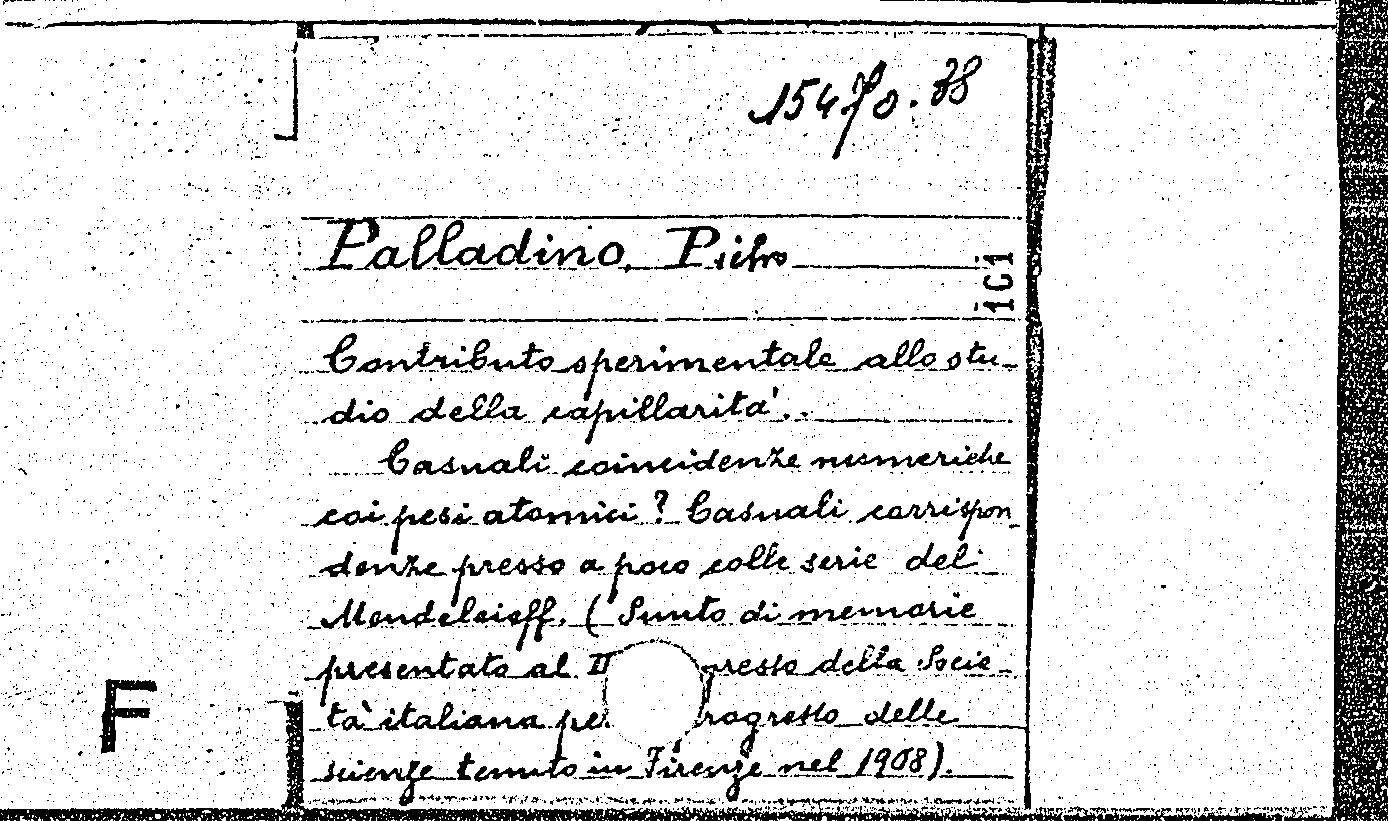 15470.38
Palladino, Pietro
101
Contributo sperimentale allo stu-
dio della capillarita'..
Casuali coincidenze numeriche
coi pesi atomici? Casuali corrispon-
denze presso a poco colle serie del
Mendeleieff. (Sunto di memorie
presentato al II gresso della Socie-
ta' italiana per rogresso delle
scienze tenuto in Firenze nel 1908).
F